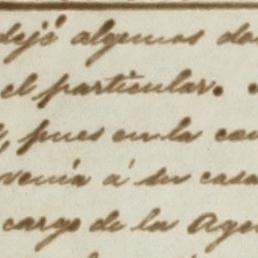 dejé algunos do
el particular.
, pues en la con
venia á su casa
cargo de la Age